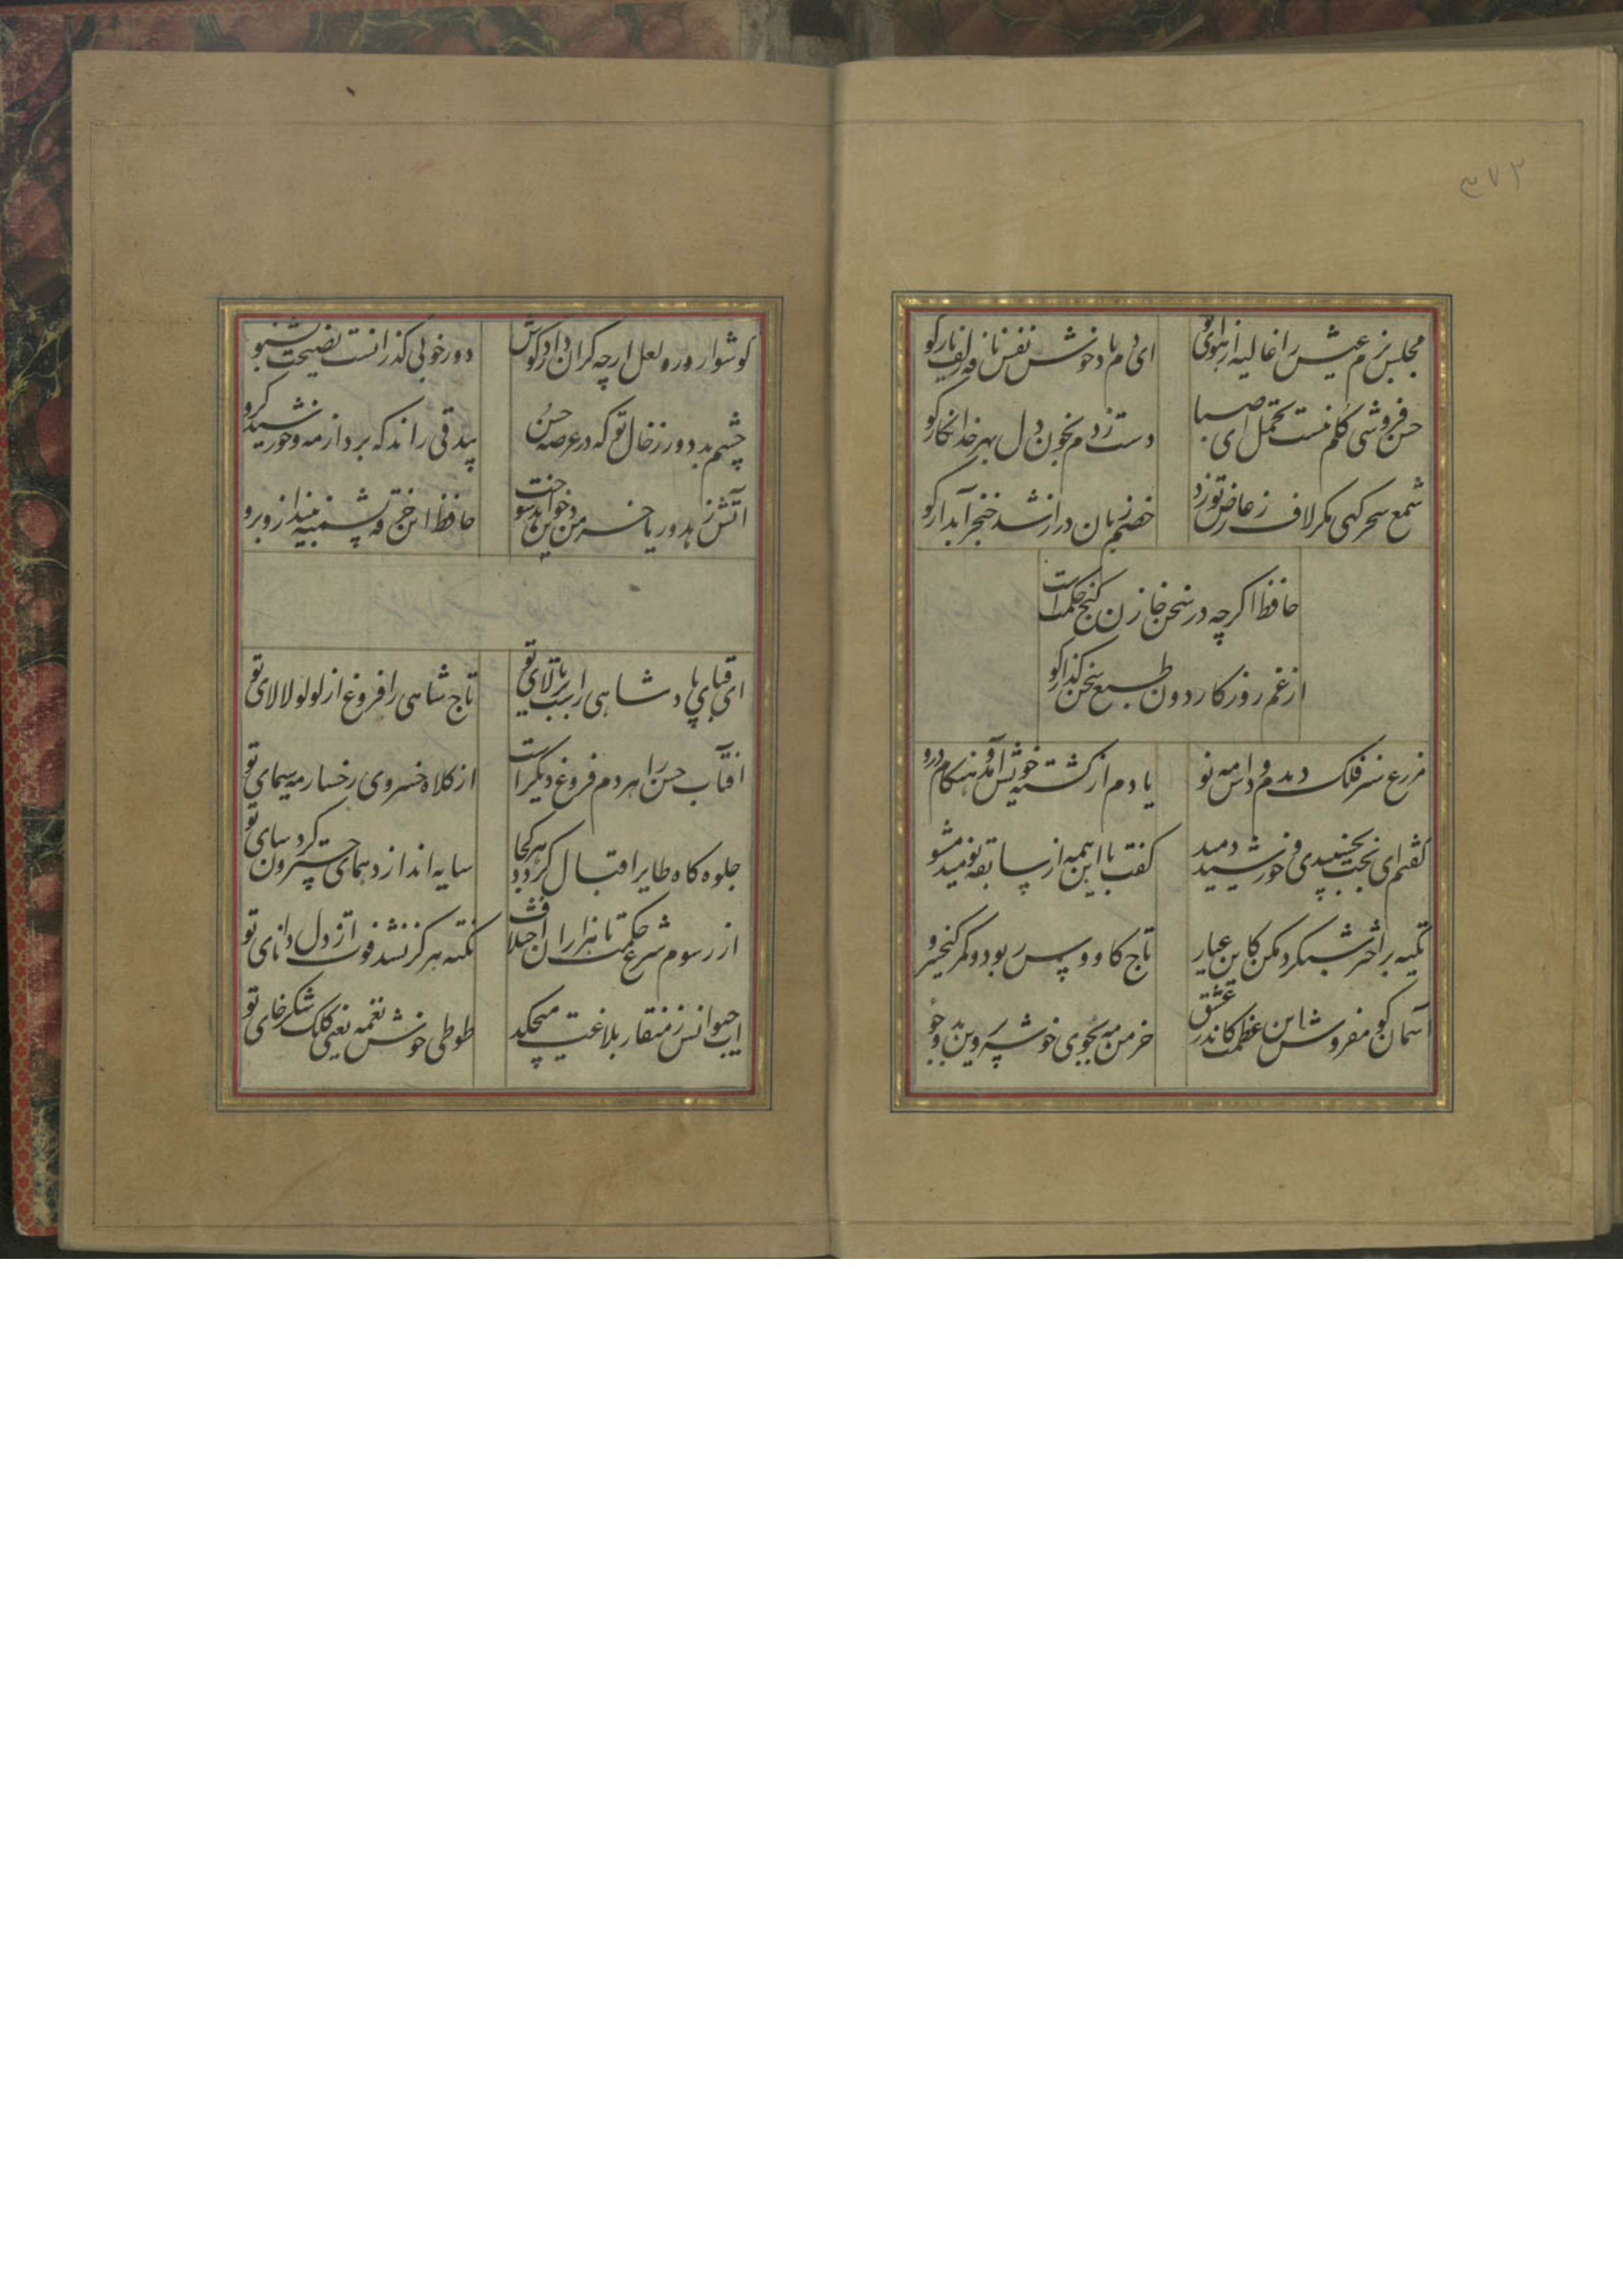 ۳۷۲
مجلس بزم عیش را غالیه از هوای تو ای دم باد خوش نفس نافه زلف یار کو
حسن فروشی گلم نیست تحمل ای صبا دست زدم بخون دل بهر خدا نگار کو
شمع سحر کهی مکر لاف ز عارض تو زد خصم زبان دراز شد خنجر آبدار کو
حافظ اکرچه در سخن خازن کنج حکمت است
از غم روزکار دون طبع سخن گذار کو
مزرع سبز فلک دیدم و داس مه نو یادم از کشته خویش آمد و هنکام درو
گفتم ای بخت بخسبیدی و خورشید دمید گفت با این همه از سابقه نومید مشو
تکیه بر اختر شبکرد مکن کاین عیار تاج کاووس ربود و کمر کیخسرو
آسمان کو مفروش این عظمت کاندر عشق خرمن مه بجوی خوشه پروین بدو جو
کوشوار در و لعل ارچه کران دارد کوش دور خوبی کذرانست نصیحت بشنو
چشم بد دور ز خال تو که در عرصه حسن بیدقی راند که برد از مه و خورشید کرو
آتش زهد و ریا خرمن دین خواهد سوخت حافظ این خرقه پشمینه بینداز و برو
ای قبای پادشاهی راست بر بالای تو تاج شاهی را فروغ از لولو لالای تو
آفتاب حسن را هر دم فروغ دیگر است از کلاه خسروی رخسار مه سیمای تو
جلوه کاه طایر اقبال کردد هر کجا سایه اندازد همای چتر گردون سای تو
از رسوم شرع حکمت با هزاران اختلاف نکته هرکز نشد فوت از دل دانای تو
آب حیوانش ز منقار بلاغت میچکد طوطی خوش نغمه یعنی کلک شکر خای تو